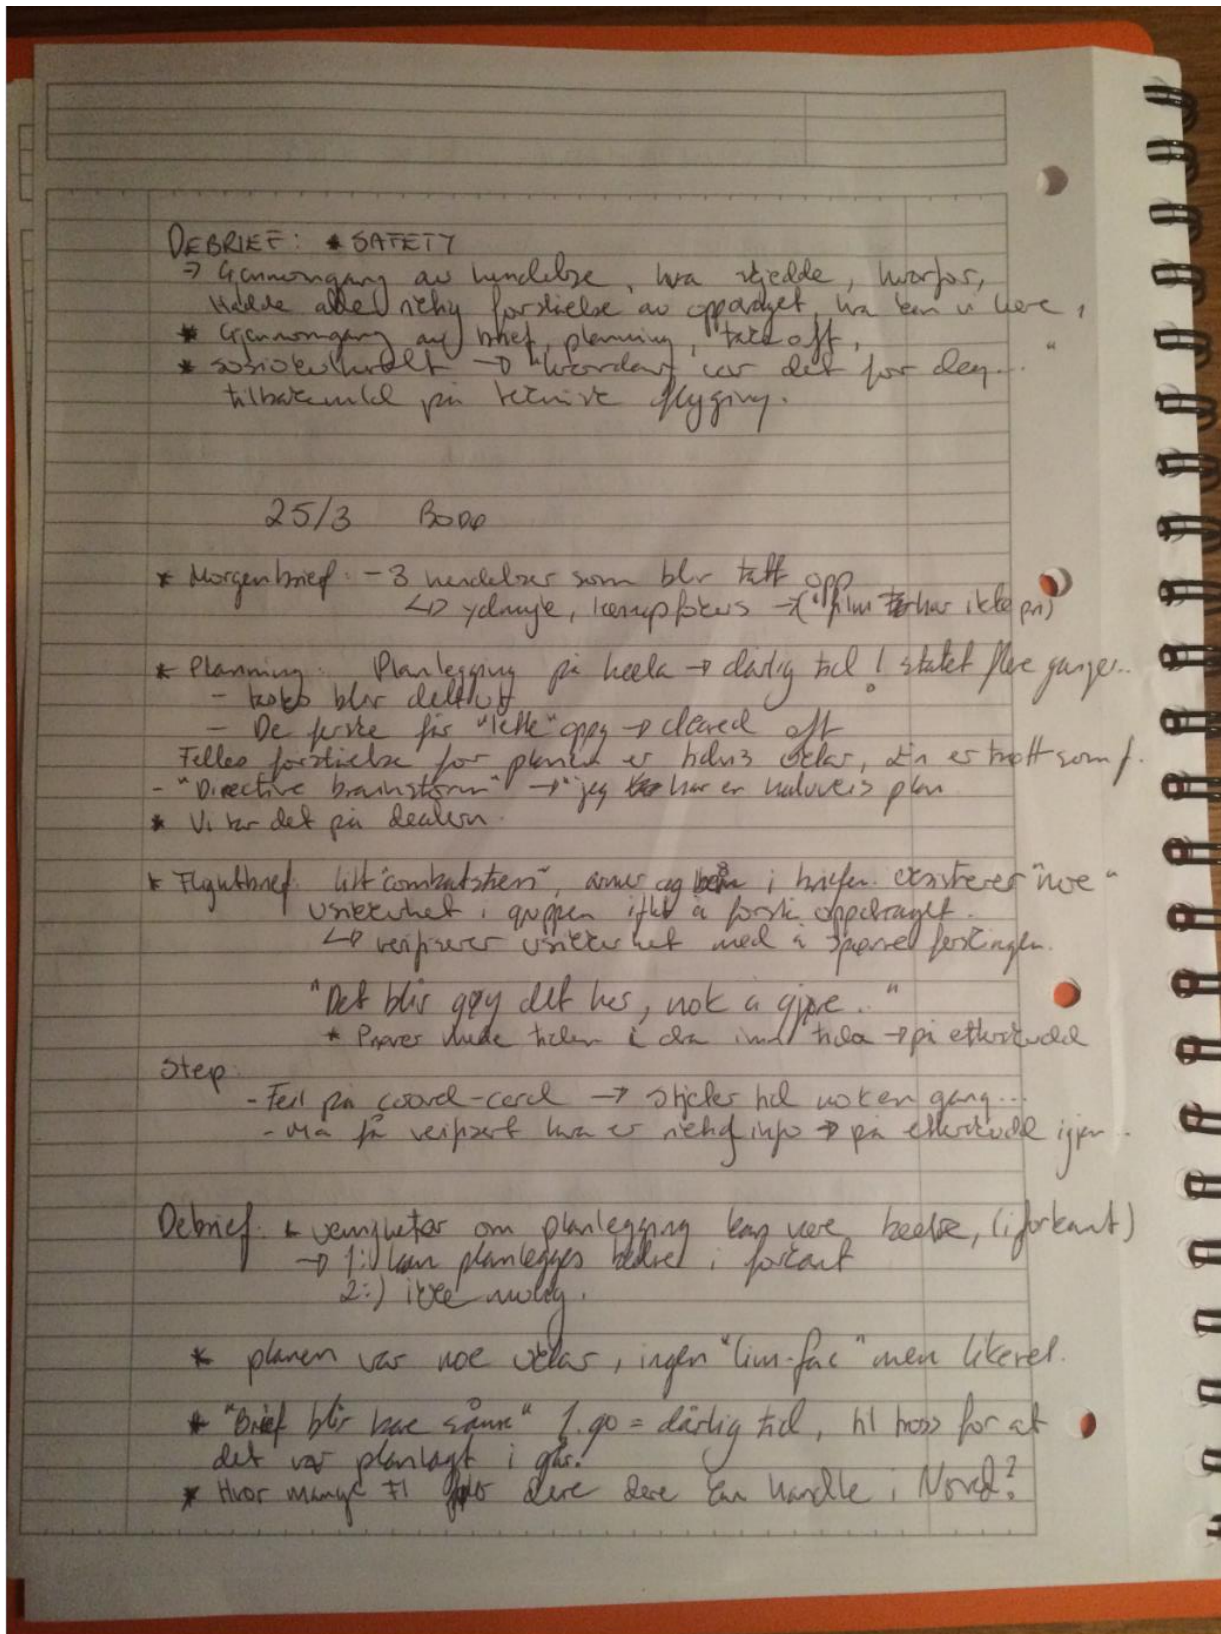 DEBRIEF: * SAFETY
→ Gjennomgang av hendelse, hva skjedde, hvorfor,
Hadde alle riktig forståelse av oppdraget, hva kan vi lære,
* Gjennomgang av brief, planning, take off,
* sosiokulturelt → "hvordan var det for deg.. "
tilbakemeld på teknisk flyging.
25/3 BODØ
* Morgenbrief: - 3 hendelser som blir tatt opp
↳ ydmyk, fokus → ( film har ikke på)
* Planning: Planlegging på → dårlig tid! flere ganger..
- blir delt ut
- De første får "lette" oppg → cleared off
Felles forståelse for planen er uklar, er trøtt som f.
- "Directive brainstorm" → "jeg har en halvveis plan
* Vi tar det på dealern.
* Flightbrief: litt "combatstress", i briefen. eksisterer "noe"
usikkerhet i gruppen ifht å forstå oppdraget.
↳ verifiserer usikkerhet med å spørre
"Det blir gøy det her, nok å gjøre.. "
* Prøver tiden i → på etterskudd
Step:
- Feil på coord-card → til nok en gang...
- Må få verifisert hva er riktig info → på etterskudd igjen..
Debrief: om planlegging kan være bedre, (i forkant)
→ 1:) kan planlegges bedre i forkant
2:) ikke mulig.
* planen var noe uklar, ingen "lim-fac" men likevel.
* "Brief blir bare sånn" 1. go = dårlig tid, til tross for at
det var planlagt i går!
* Hvor mange dere dere kan handle i Nord?